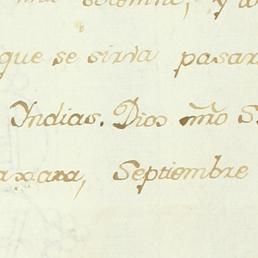 solemne, y
que se sirva pasar
Yndias. Dios mro S
axara, Septiembre